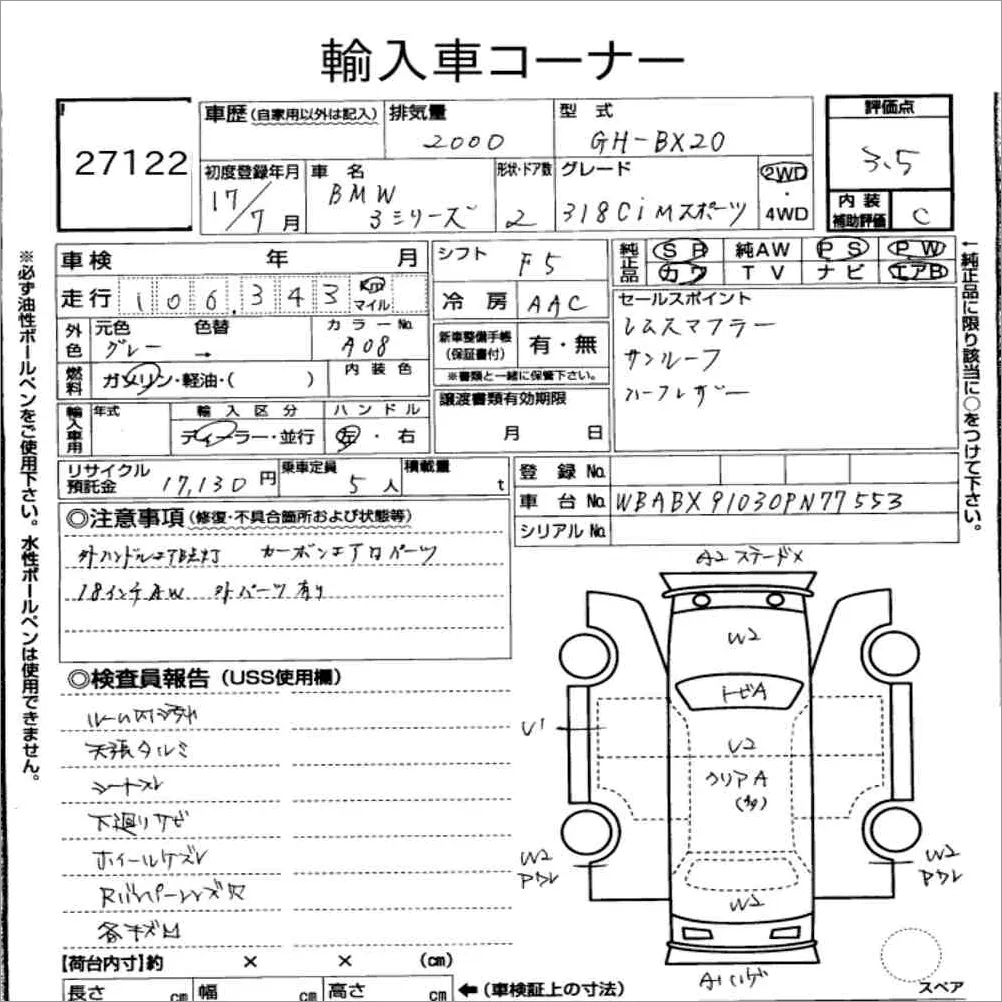 輸入車コーナー
27122
車歴(自家用以外は記入)
排気量
2000
型式
GH-BX20
評価点
3.5
初度登録年月
17/7月
車名
BMW
3シリーズ
形状・ドア数
2
グレード
318CiMスポーツ
2WD
・
4WD
内装
補助評価
C
車検 年 月
シフト
F5
純正品
SR 純AW PS PW
カワ TV ナビ エアB
走行 106,343 Km
マイル
冷房
AAC
セールスポイント
レムスマフラー
サンルーフ
ハーフレザー
外色
元色 色替
グレー →
カラーNo.
A08
新車整備手帳
(保証書付)
有・無
※書類と一緒に保管下さい。
燃料
ガソリン・軽油・( )
内装色
輸入車用
年式
輸入区分
ディーラー・並行
ハンドル
左・右
譲渡書類有効期限
月 日
リサイクル
預託金
17,130円
乗車定員
5人
積載量
t
登録No.
車台No.
WBABX91030PN77553
シリアルNo.
※必ず油性ボールペンをご使用下さい。水性ボールペンは使用できません。
↑純正品に限り該当に○をつけて下さい。
◎注意事項(修復・不具合箇所および状態等)
外ハンドルエアB点灯 カーボンエアロパーツ
18インチAW 外パーツ有り
◎検査員報告(USS使用欄)
天張タルミ
シートスレ
下廻りサビ
ホイールケズレ
各キズ凹
A2
W2
トビA
U1
U2
クリアA
(多)
W2
アウレ
W2
アウレ
W2
スペア
【荷台内寸】約 × × (cm)
長さ cm 幅 cm 高さ cm ←(車検証上の寸法)